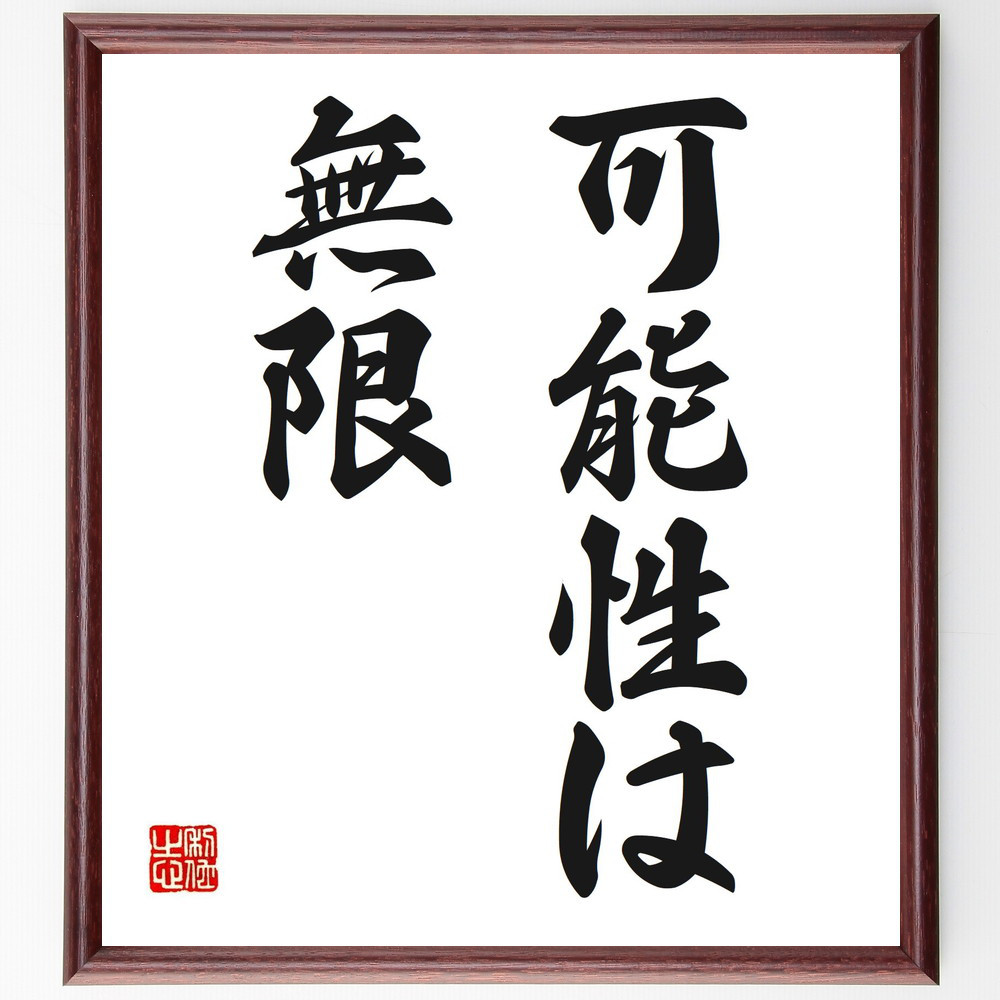 可能性は
無限